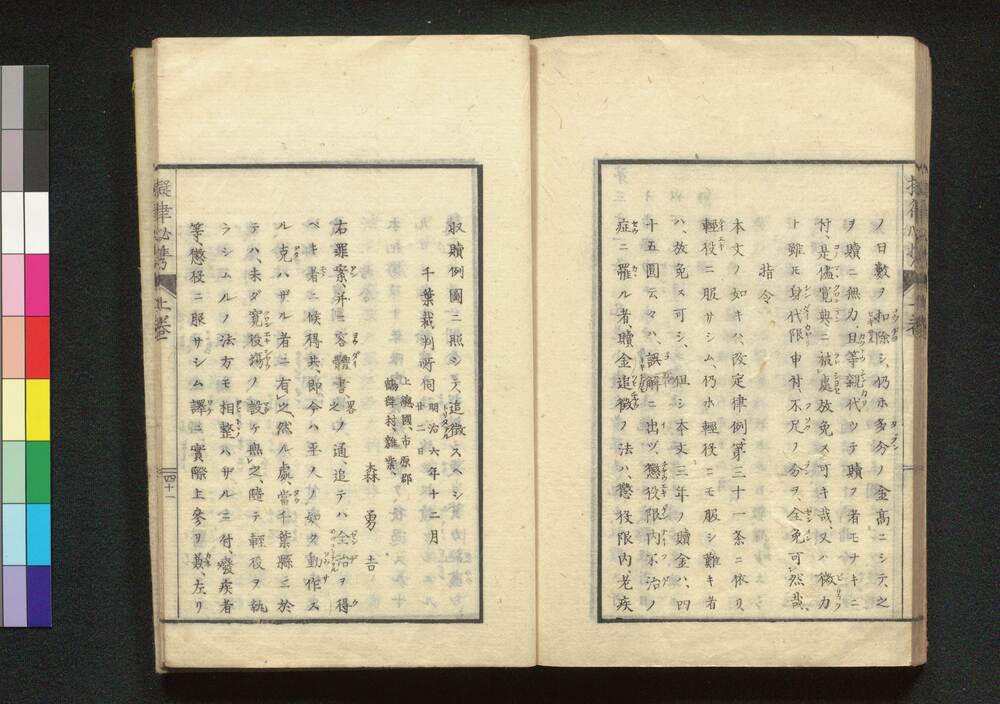 ノ日數ヲ扣除シ、仍ホ多分ノ金高ニシテ、之
ヲ贖ニ無力、且等親代ツテ贖フ者モナキニ
付、是儘寛典ニ被處放免ス可キ哉、又ハ微力
ト雖モ身代限申付、不足ノ分ヲ、全免可然哉、
指令
本文ノ如キハ、改定律例第三十一条ニ依リ、
輕役ニ服サシム、仍ホ輕役ニモ服シ難キ者
ハ、放免ス可シ、但シ本文三年ノ贖金ハ、四
十五圓云々ハ、誤解ニ出ヅ、懲役限内不治ノ
症ニ罹ル者、贖金追徴ノ法ハ、懲役限内、老疾
收贖例圖ニ照シテ、追徴スベシ
千葉裁判所伺 明治六年十二月
廿二日
上總國、市原郡
鶴舞村、雜業、
森勇吉
右罪案、并ニ容體書、畧之通、追テハ全治ヲ得
ベキ者ニ候得共、即今ハ平人ノ如ク動作ス
ル克ハザル者ニ有之、然ル處、當千葉縣ニ於
テハ、未ダ寛役塲ノ設ケ無之、隨テ輕役ヲ執
ラシムルノ法方モ相整ハザルニ付、癈疾者
等、懲役ニ服サシム譯ニ實際上參リ兼、左リ
擬律必携 上巻
四十